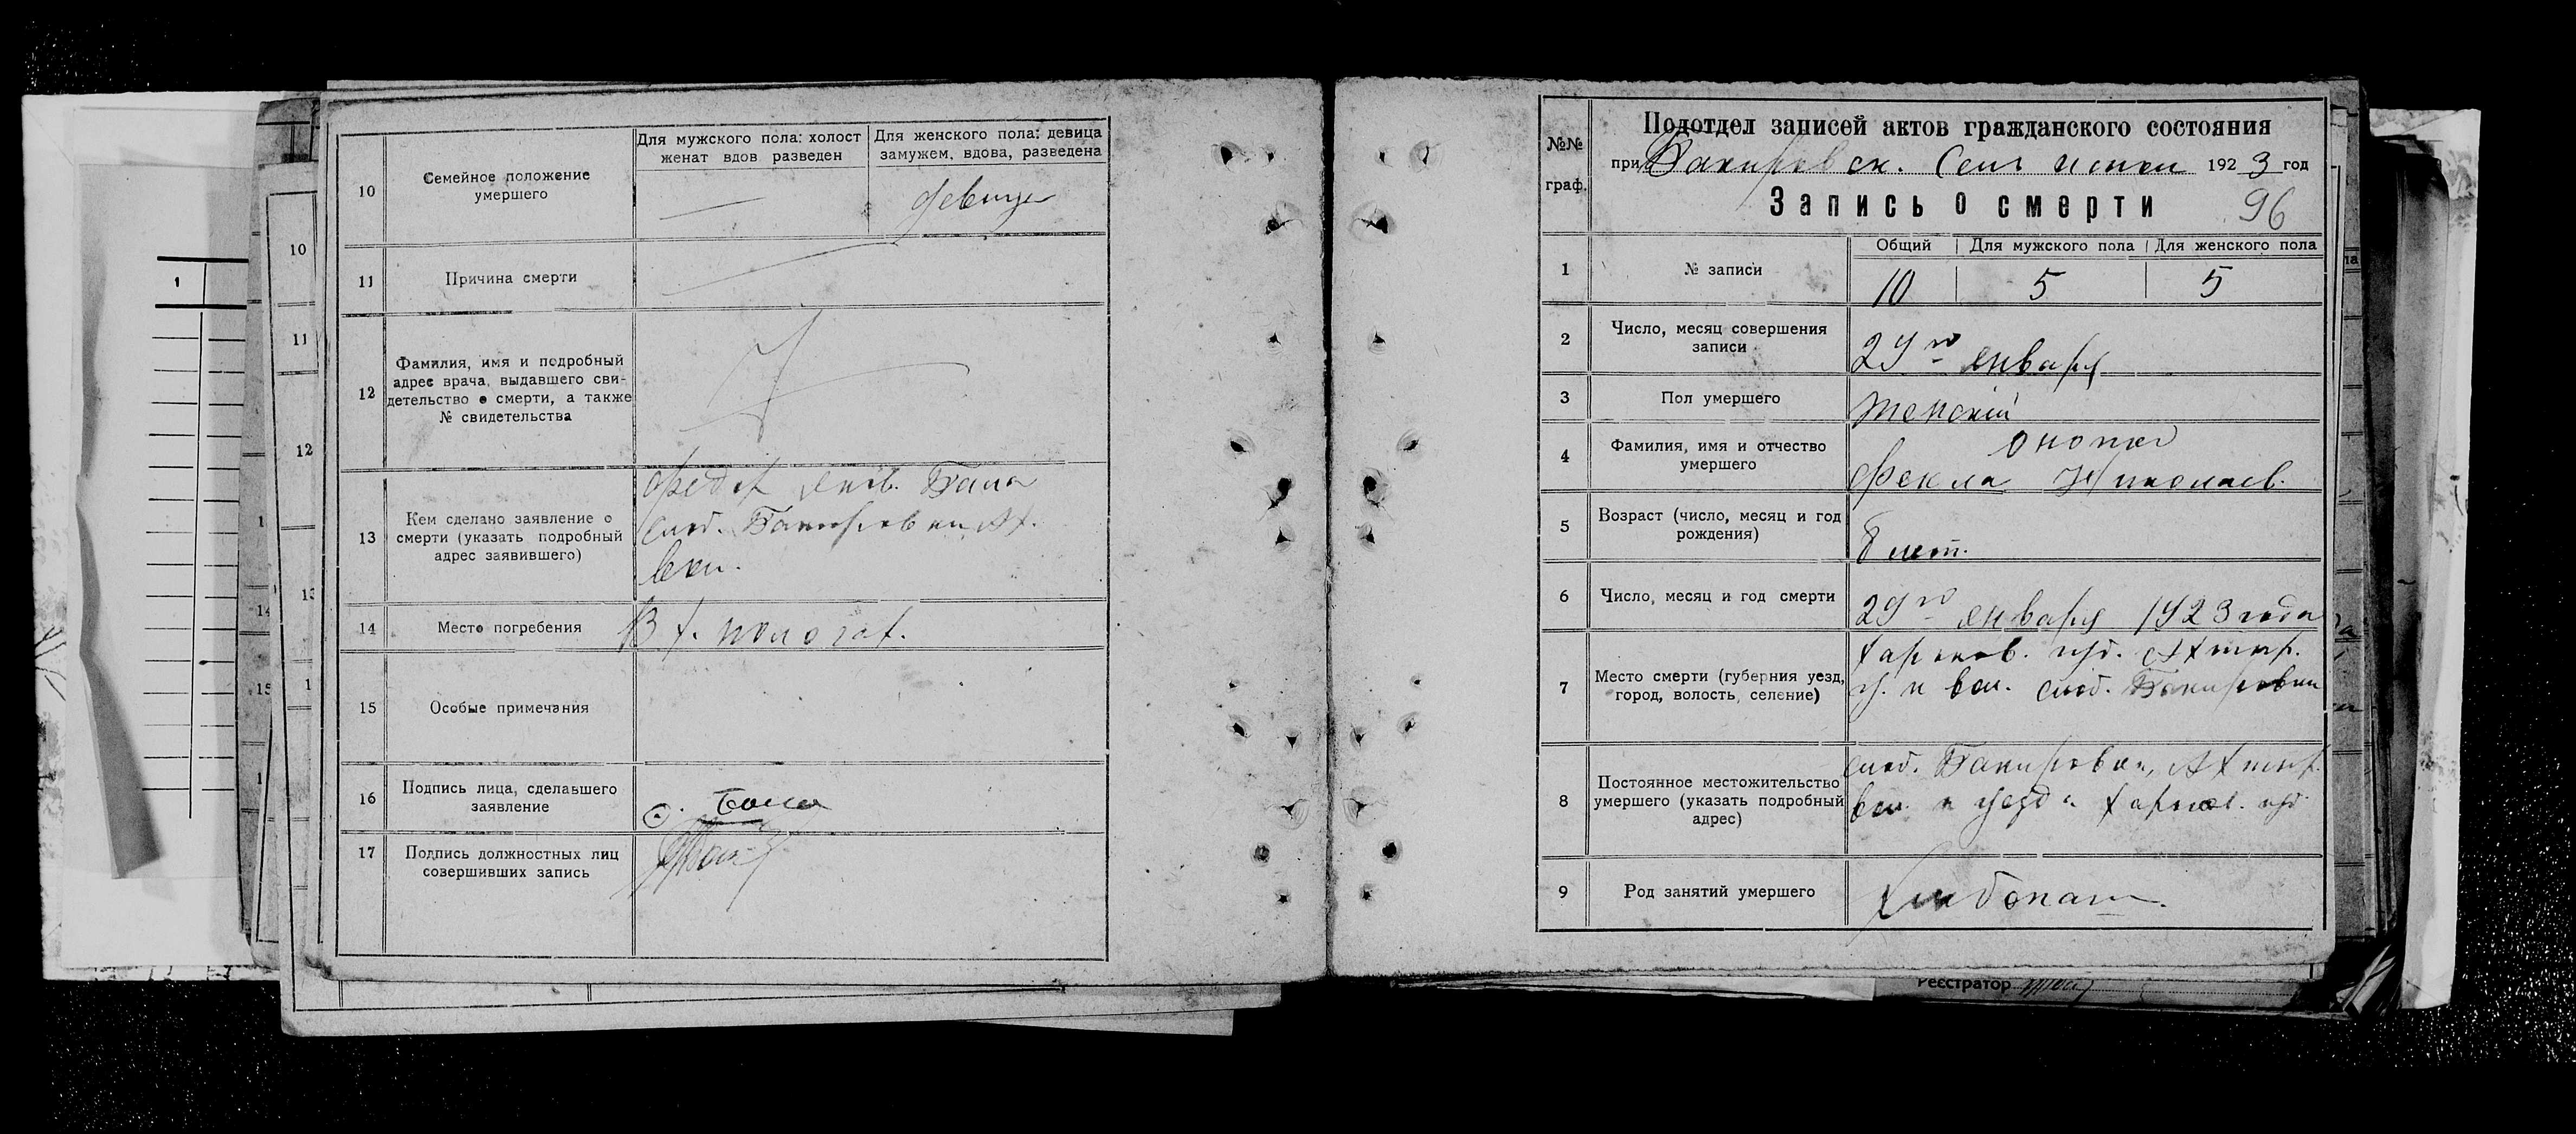 10
Семейное положение
умершего
Для мужского пола: холост
женат вдов разведен
Для женского пола: девица
замужем, вдова, разведена
девица
11
Причина смерти
12
Фамилия, имя и подробный
адрес врача, выдавшего сви-
детельство о смерти, а также
№ свидетельства
13
Кем сделано заявление о
смерти (указать подробный
адрес заявившего)
Федор Яков.
слод. Бакировки Ах.
вол.
14
Место погребения
В х.
15
Особые примечания
16
Подпись лица, сделавшего
заявление
17
Подпись должностных лиц
совершивших запись
№№
граф.
Подотдел записей актов гражданского состояния
при Бакировск. Сель 1923 год
Запись о смерти
96
1
№ записи
Общий
Для мужского пола
Для женского пола
10
5
5
2
Число, месяц совершения
записи
29го января
3
Пол умершего
Женский
4
Фамилия, имя и отчество
умершего
Фекла Николаев.
5
Возраст (число, месяц и год
рождения)
8 лет.
6
Число, месяц и год смерти
29го января 1923 года
7
Место смерти (губерния уезд,
город, волость, селение)
Харьков. губ. Ахтыр.
у. и вол. слод. Бакировки
8
Постоянное местожительство
умершего (указать подробный
адрес)
слод. Бакировки, Ахтыр.
вол. и уезда Харьков. губ.
9
Род занятий умершего
Хлебопаш.
Реєстратор
10
11
12
13
1